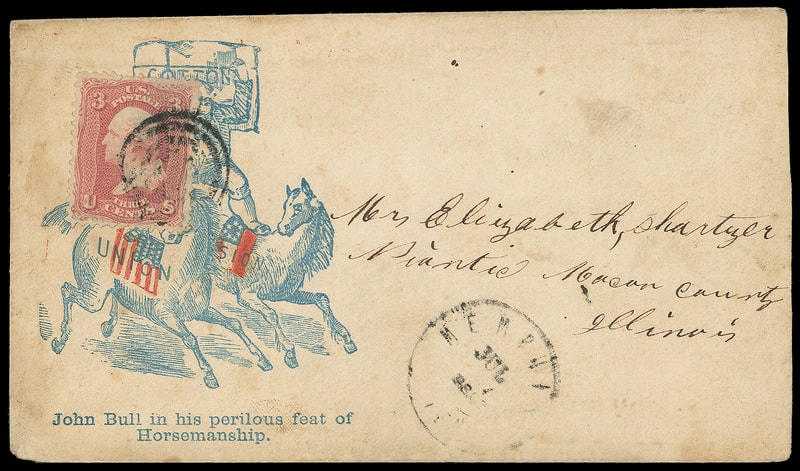 COTTON
3 3
U.S.
POSTAGE
THREE
U CENTS S
UNION
John Bull in his perilous feat of
Horsemanship.
Mrs Elizabeth, Shartzer
Niantic Macon county
Illinois
MEMPHI
JUL